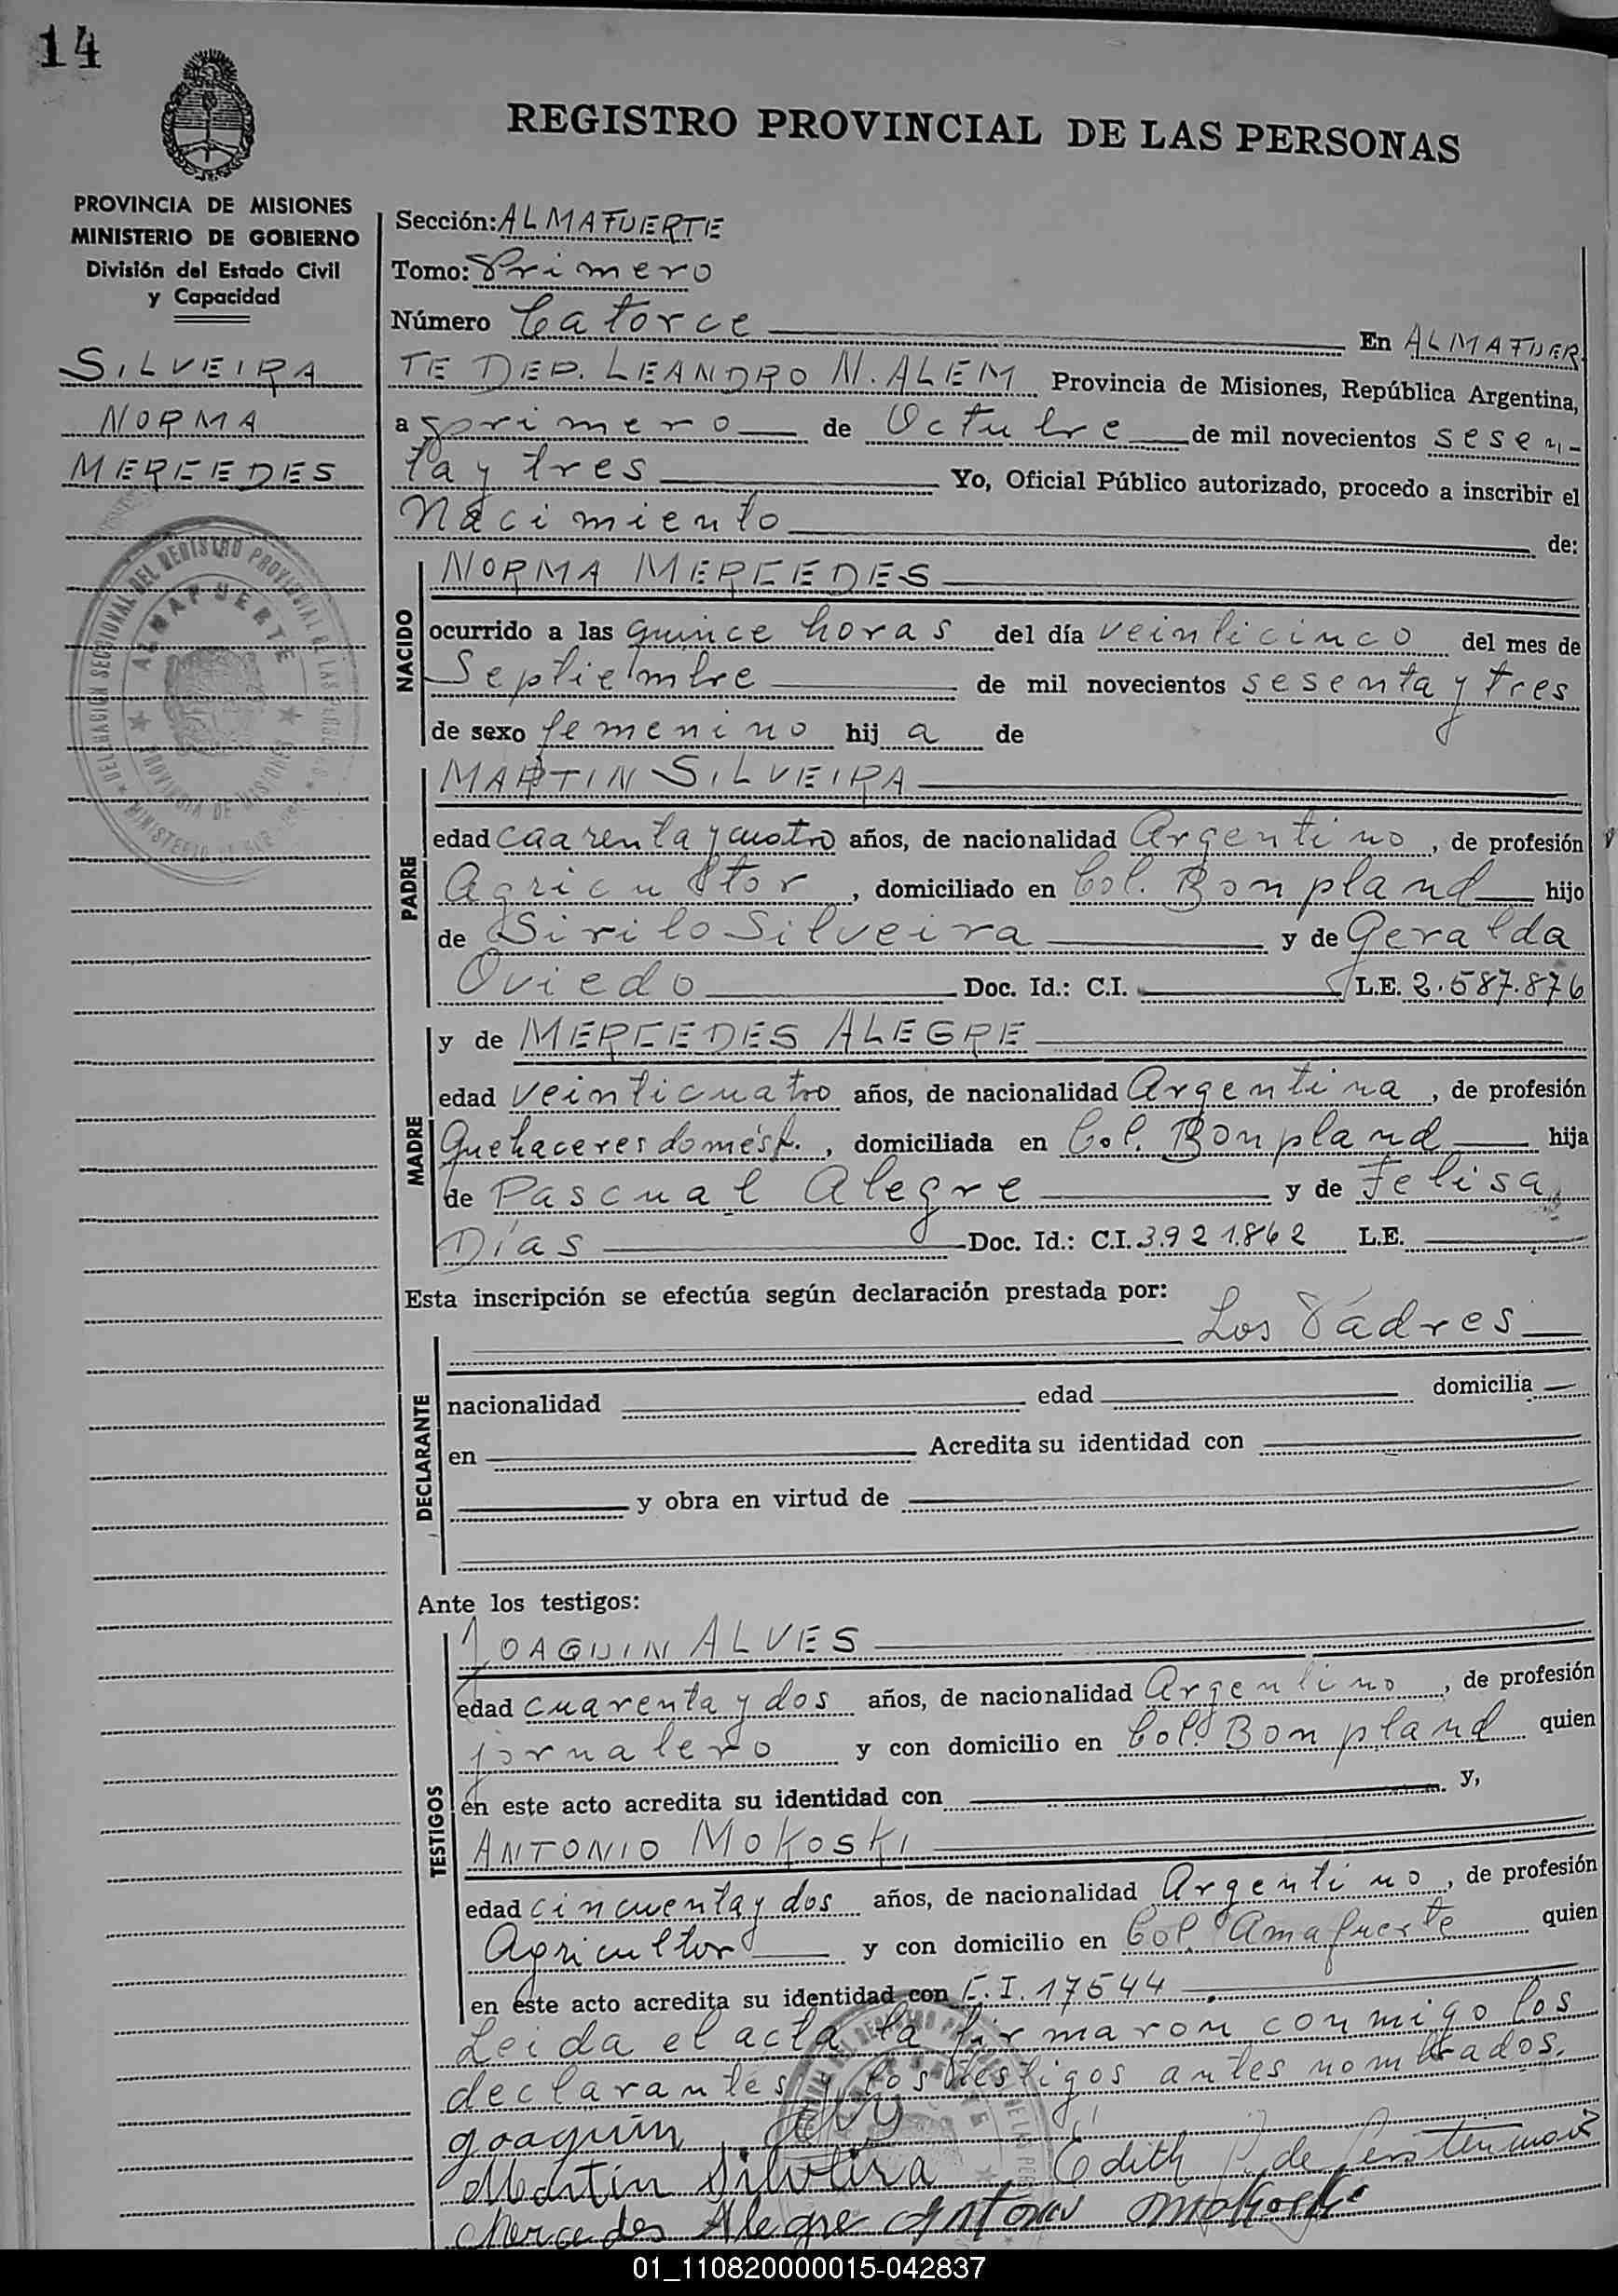 14
REGISTRO PROVINCIAL DE LAS PERSONAS
PROVINCIA DE MISIONES
MINISTERIO DE GOBIERNO
División del Estado Civil
y Capacidad
SILVEIRA
NORMA
MERCEDES
DELEGACION SECCIONAL DEL REGISTRO PROVINCIAL DE LAS PERSONAS
ALMAFUERTE
PROVINCIA DE MISIONES
MINISTERIO DE
Sección: ALMAFUERTE
Tomo: Primero
Número Catorce En ALMAFUER
TE DEP. LEANDRO N. ALEM Provincia de Misiones, República Argentina,
a primero de Octubre de mil novecientos sesen-
ta y tres Yo, Oficial Público autorizado, procedo a inscribir el
Nacimiento de:
NACIDO
NORMA MERCEDES
ocurrido a las quince horas del día veinticinco del mes de
Septiembre de mil novecientos sesenta y tres
de sexo femenino hij a de
PADRE
MARTIN SILVEIRA
edad caarenta y cuatro años, de nacionalidad Argentino, de profesión
Agricultor, domiciliado en Col. Bonpland hijo
de Sirilo Silveira y de Geralda
Oviedo Doc. Id.: C.I. L.E. 2.587.876
MADRE
y de MERCEDES ALEGRE
edad veinticuatro años, de nacionalidad Argentina, de profesión
Quehaceres domést., domiciliada en Col. Bonpland hija
de Pascual Alegre y de Felisa
Días Doc. Id.: C.I. 3.921.862 L.E.
Esta inscripción se efectúa según declaración prestada por:
Los Padres
DECLARANTE
nacionalidad edad domicilia
en Acredita su identidad con
y obra en virtud de
Ante los testigos:
TESTIGOS
JOAQUIN ALVES
edad cuarenta y dos años, de nacionalidad Argentino, de profesión
jornalero y con domicilio en Col. Bonpland quien
en este acto acredita su identidad con y,
ANTONIO MOKOSKI
edad cincuenta y dos años, de nacionalidad Argentino, de profesión
Agricultor y con domicilio en Col. Amafuerte quien
en este acto acredita su identidad con C.I. 17544.
Leida el acta la firmaron conmigo los
declarantes y los testigos antes nombrados.
Joaquin
Martín Silveira Edith P. de
Mercedes Alegre Antonio Mokoski
01_110820000015-042837